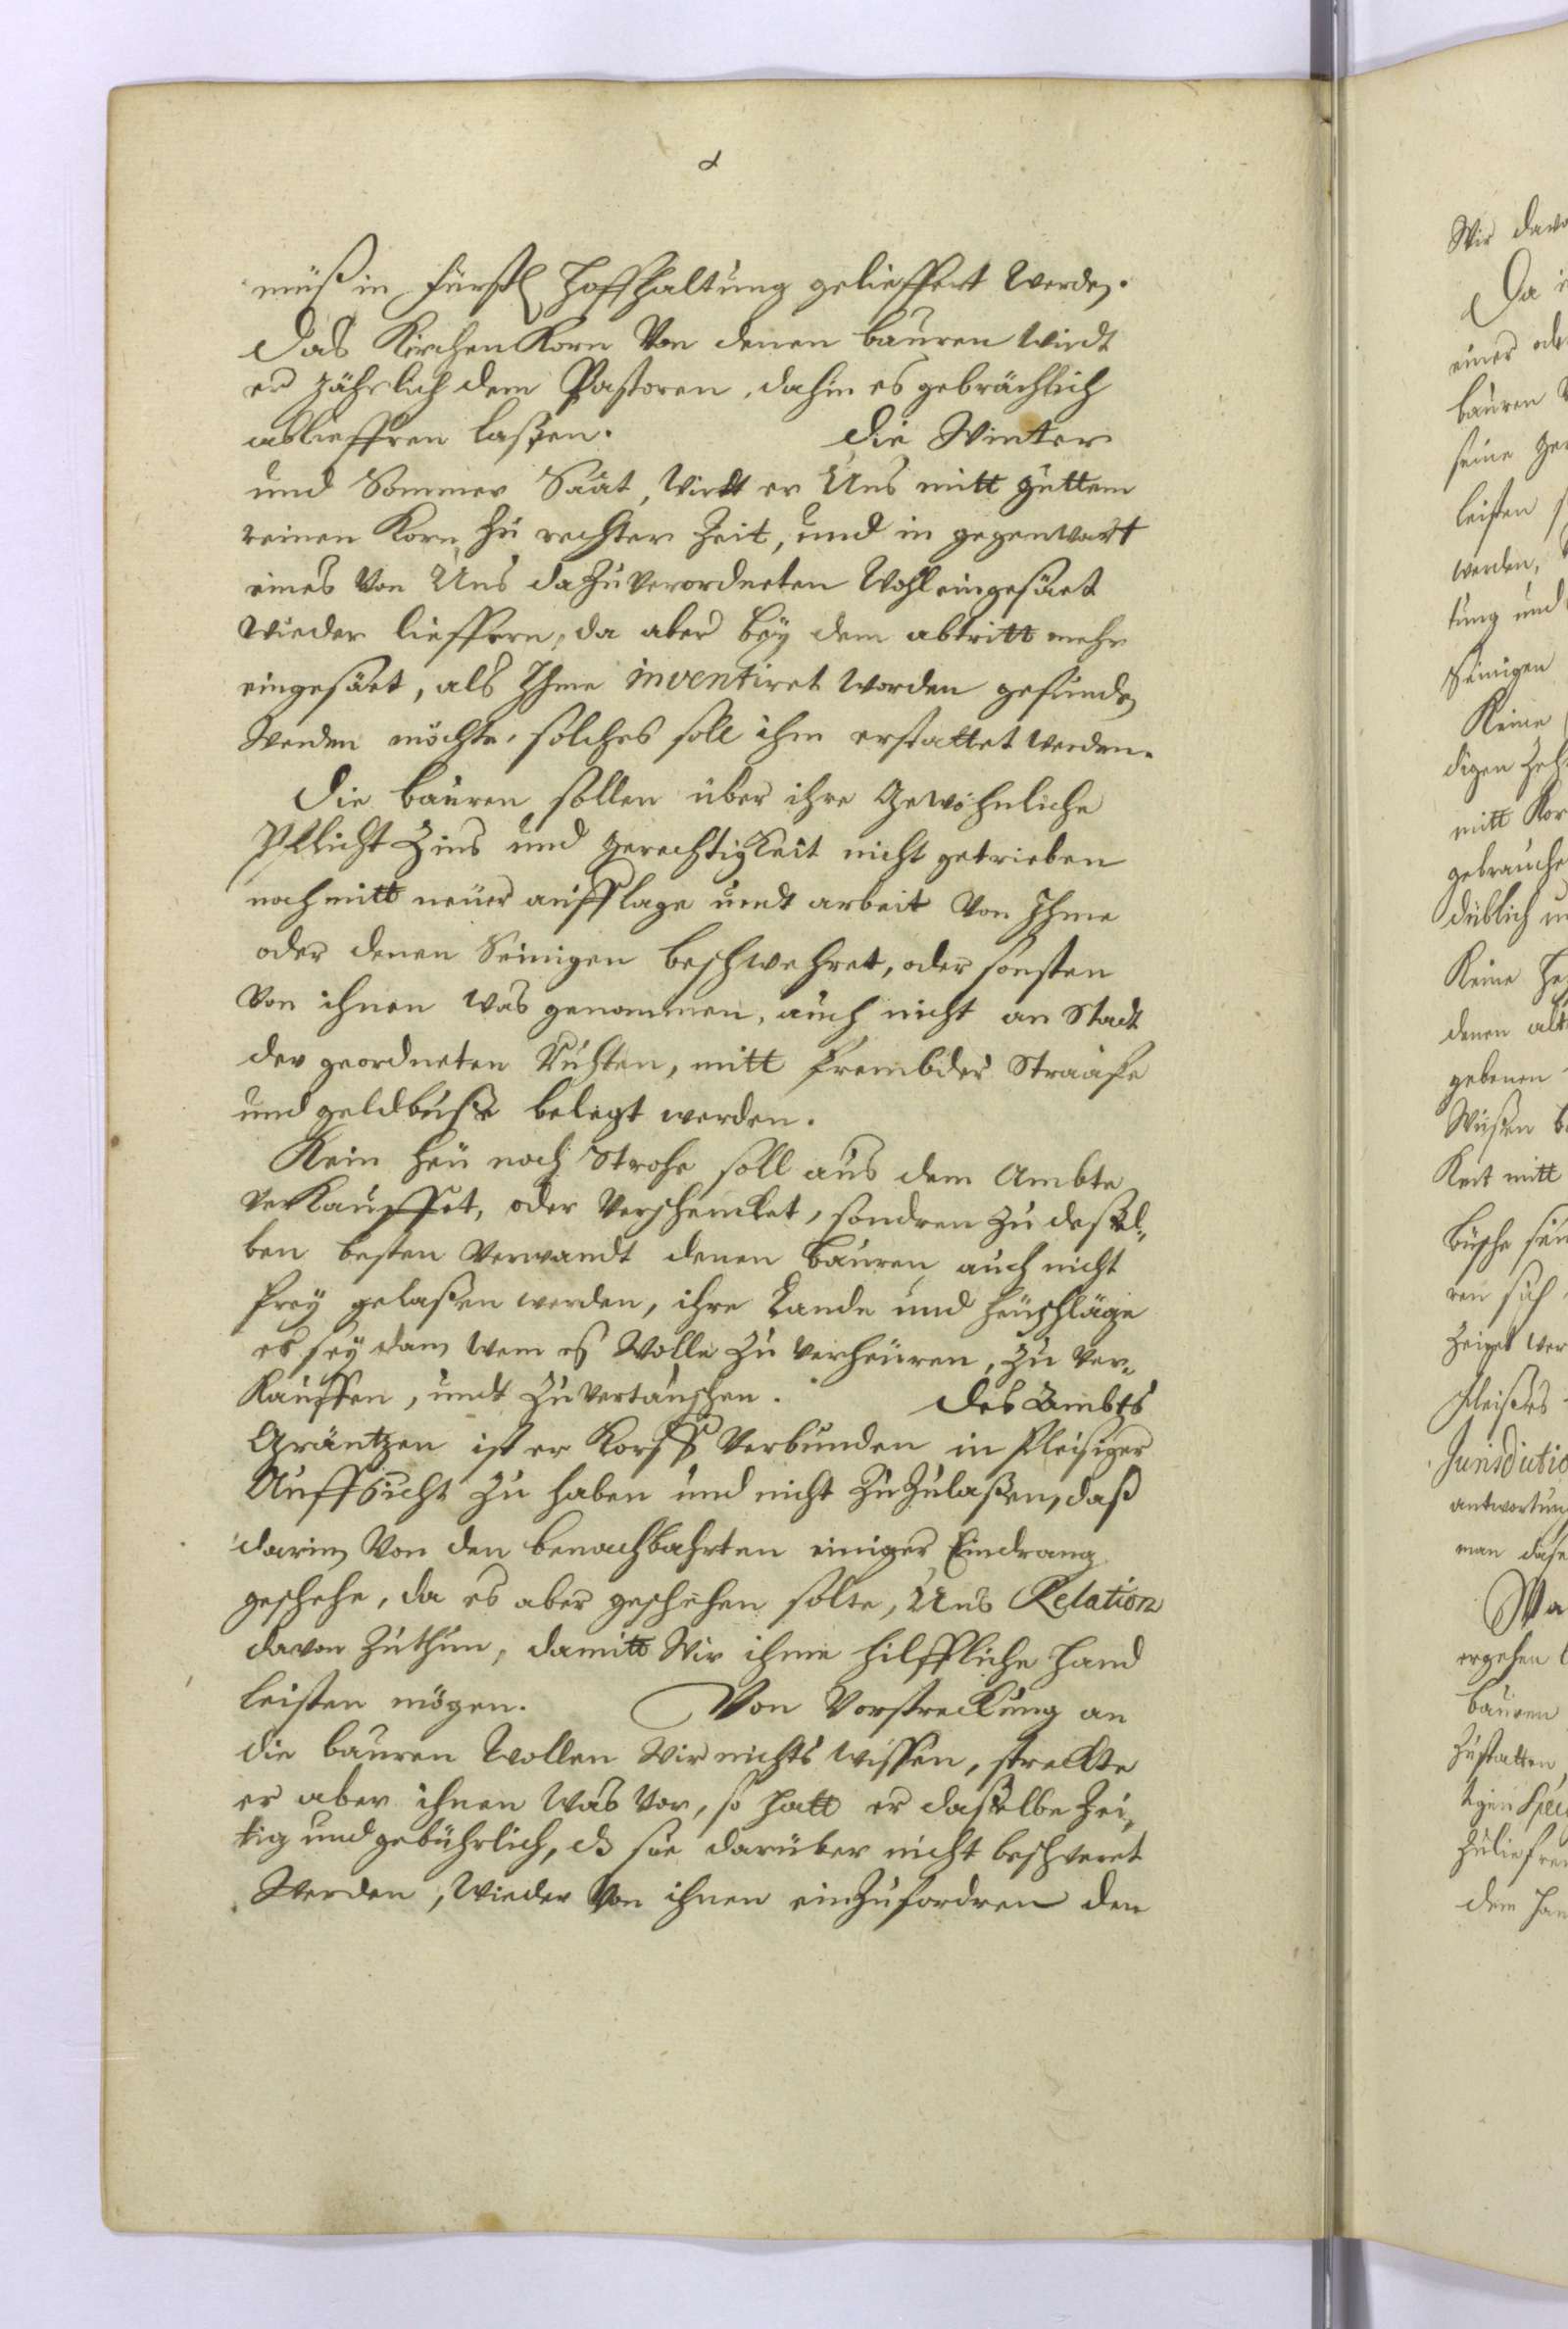 d
müß in fürstl Hoffhaltung gelieffert werden.
Das KirchenKorn Von denen bauren wirdt
er Jährlich dem Pastoren, dahin es gebrächlich
ablieffren laßen. Die Winter
und Sommer Saat, wirdt er Uns mitt guttem
reinen Korn zu rechter Zeit, und in gegenwart
eines Von Uns dazu verordneten Wohl eingesäet
wieder lieffern, da aber bey dem abtritt mehr
eingesäet, als Ihme inventiret worden gefunden
Werden möchte, solches soll ihm erstattet werden.
Die bauren sollen über ihre Gewöhnliche
Pflicht Zins und Gerechtigkeit nicht getrieben
noch mitt neuer aufflage undt arbeit Von Ihme
oder denen Seinigen beschwehret, oder sonsten
Von ihnen was genommen, auch nicht an Stadt
der geordneten Ruhten, mitt frembder Straafe
und geldbuße belegt werden.
Kein Heu noch Strohe soll aus dem Ambte
verkauffet, oder Verschencket, sondren zu deßel„
ben besten Verwandt denen bauren auch nicht
frey gelaßen werden, ihre Lande und Heuschläge
es sey dan wem es Wolle zu verheuren, zu Ver„
kauffen, undt zu vertauschen. Des Ambts
Gräntzen ist er Verbunden in fleisiger
Auffsicht zu haben und nicht zu zulaßen, daß
darin Von den benachbahrten einiger Eindrang
geschehe, da es aber geschehen solte, Uns Relation
davon zu thun, damitt Wir ihme hilffliche Hand
leisten mögen. Von Vorstreckung an
die bauren Wollen Wir nichts wissen, streckte
er aber ihnen Was Vor, so hatt er daßelbe Zei„
tig und gebührlich, das sie darüber nicht beschweret
Werden, Wieder Von ihnen einzufordren den
Wir
Da
einer
bauren
seine
leisten
werden,
tung und
Seinigen
Keine
digen
mitt
gebrauche
Keine
denen
gebenen
Keit mitt
ren sich
fleißes
man
Wa
ergehen
bauren
zustatten
dem